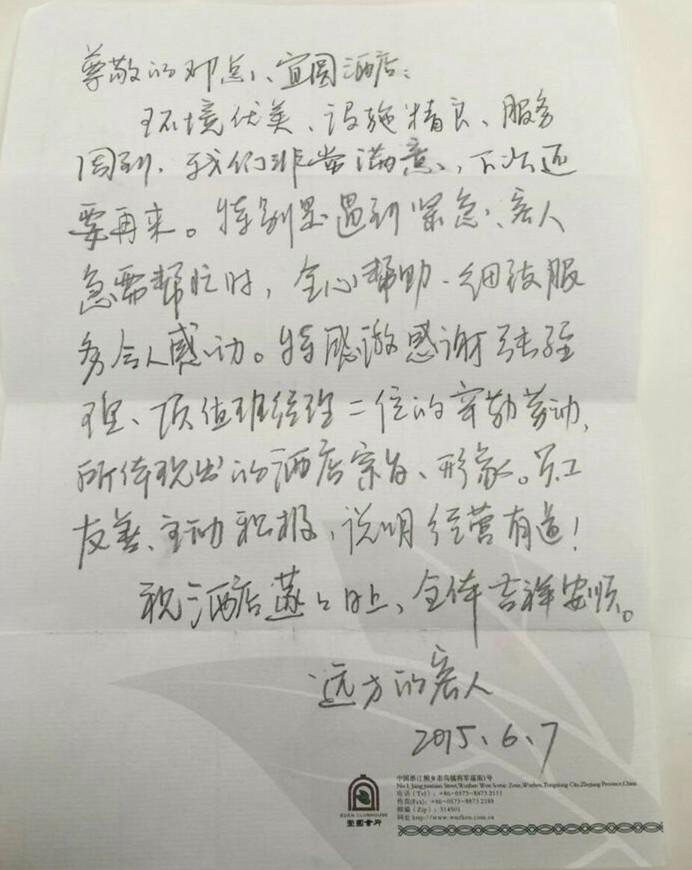 尊敬的 宜园酒店：
环境优美、设施精良、服务
周到，我们非常满意，下次还
要再来。特别是遇到紧急、客人
急需帮忙时，全心帮助、细致服
务令人感动。特感激感谢张经
理、项值班经理二位的辛勤劳动，
所体现出的酒店宗旨、形象。员工
友善、主动积极，说明经营有道！
祝酒店蒸蒸日上，全体吉祥安顺。
远方的客人
2015、6、7
中国浙江桐乡市乌镇
Wuzhen West Scenic Zone, Wuzhen, Tongxiang City, Zhejiang Province, China
电话（Tel）：+86-0573-8873 2111
传真(Fax)：+86-0573-8873
邮编（Zip）：314501
网址 http://www.wuzhen.com.cn
EDEN CLUBHOUSE